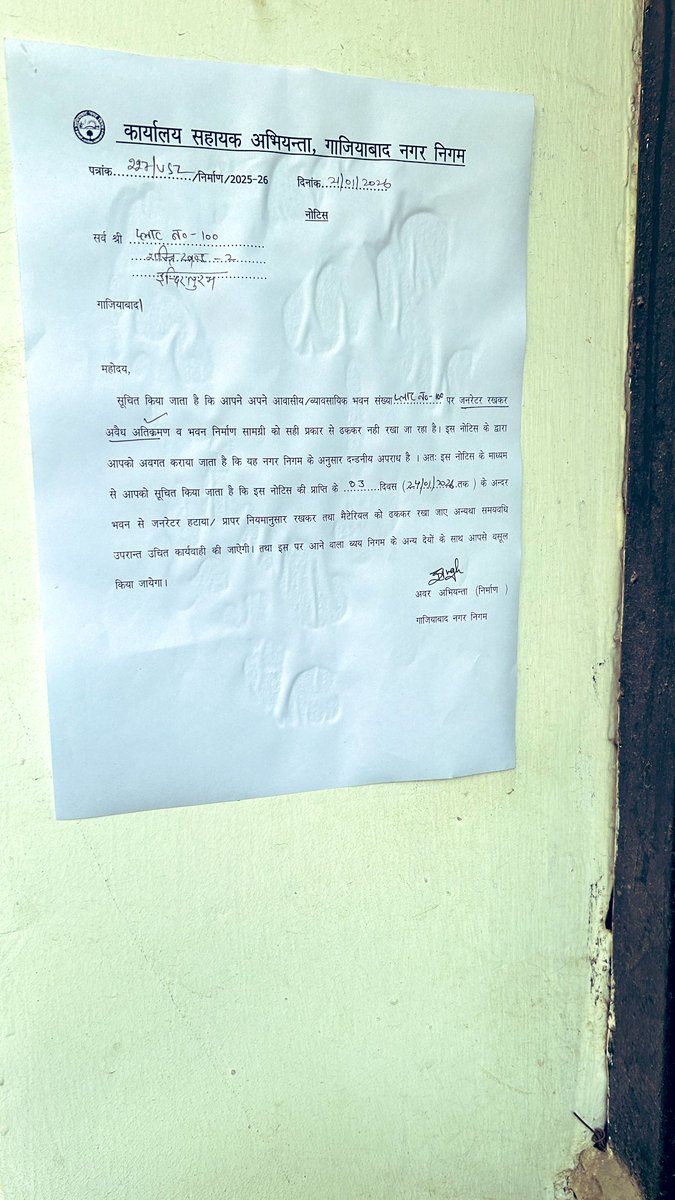 कार्यालय सहायक अभियन्ता, गाजियाबाद नगर निगम
पत्रांक 227/VSZ /निर्माण/2025-26 दिनांक 21/01/2026
नोटिस
सर्व श्री प्लाट नं०-100
शक्ति खण्ड-2
इन्दिरापुरम
गाजियाबाद|
महोदय,
सूचित किया जाता है कि आपने अपने आवासीय/व्यावसायिक भवन संख्या प्लाट नं०-100 पर जनरेटर रखकर
अवैध अतिक्रमण व भवन निर्माण सामग्री को सही प्रकार से ढककर नही रखा जा रहा है। इस नोटिस के द्वारा
आपको अवगत कराया जाता है कि यह नगर निगम के अनुसार दन्डनीय अपराध है । अतः इस नोटिस के माध्यम
से आपको सूचित किया जाता है कि इस नोटिस की प्राप्ति के 03 दिवस (24/01/2026 तक ) के अन्दर
भवन से जनरेटर हटाया/ प्रापर नियमानुसार रखकर तथा मैटेरियल को ढककर रखा जाए अन्यथा समयवधि
उपरान्त उचित कार्यवाही की जाऐगी। तथा इस पर आने वाला ब्यय निगम के अन्य देयों के साथ आपसे वसूल
किया जायेगा।
अवर अभियन्ता (निर्माण )
गाजियाबाद नगर निगम